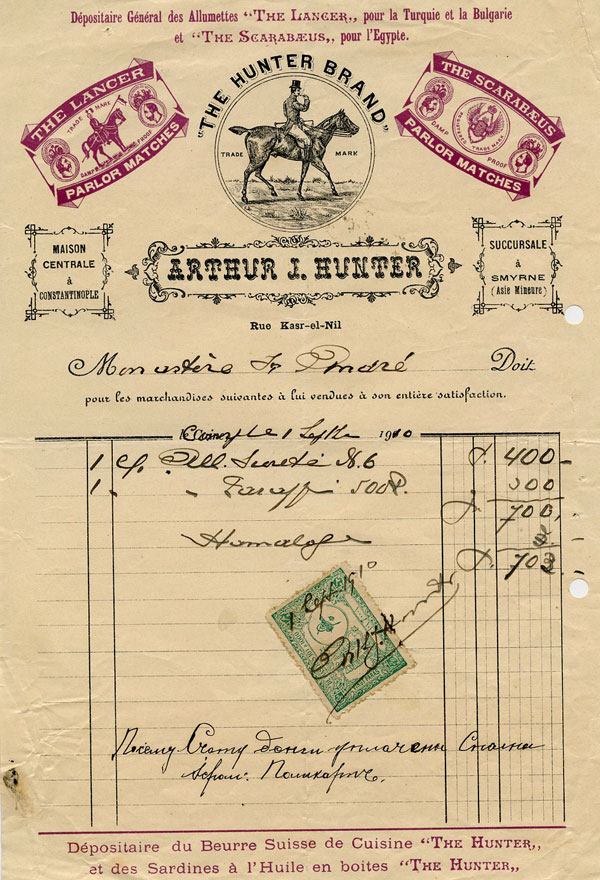 Dépositaire Général des Allumettes "THE LANCER„ pour la Turquie et la Bulgarie
et "THE SCARABÆUS„ pour l'Egypte.
THE LANCER
TRADE MARK
DAMP PROOF
PARLOR MATCHES
"THE HUNTER BRAND"
TRADE MARK
THE SCARABÆUS
REGISTERED TRADE MARK
DAMP PROOF
PARLOR MATCHES
MAISON
CENTRALE
à
CONSTANTINOPLE
ARTHUR J. HUNTER
SUCCURSALE
à
SMYRNE
(Asie Mineure)
Rue Kasr-el-Nil
Monastère St André Doit
pour les marchandises suivantes à lui vendues à son entière satisfaction.
le 1 Septbre 1910
1 c/ All. Sureté N. 6 400 -
1 - 300 -
700,
703 -
1 Sept 1910
Dépositaire du Beurre Suisse de Cuisine "THE HUNTER„
et des Sardines à l'Huile en boites "THE HUNTER„